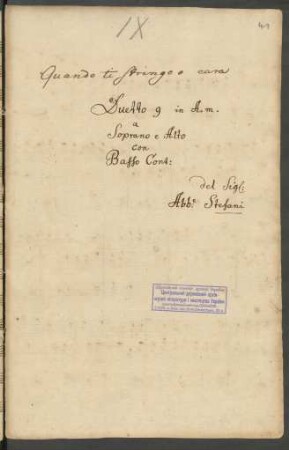 IX
49
Quando ti stringo o cara
Duetto 9 in A.m.
a
Soprano e Alto
con
Basso Cont:
del Sigl:
Abb: Stefani